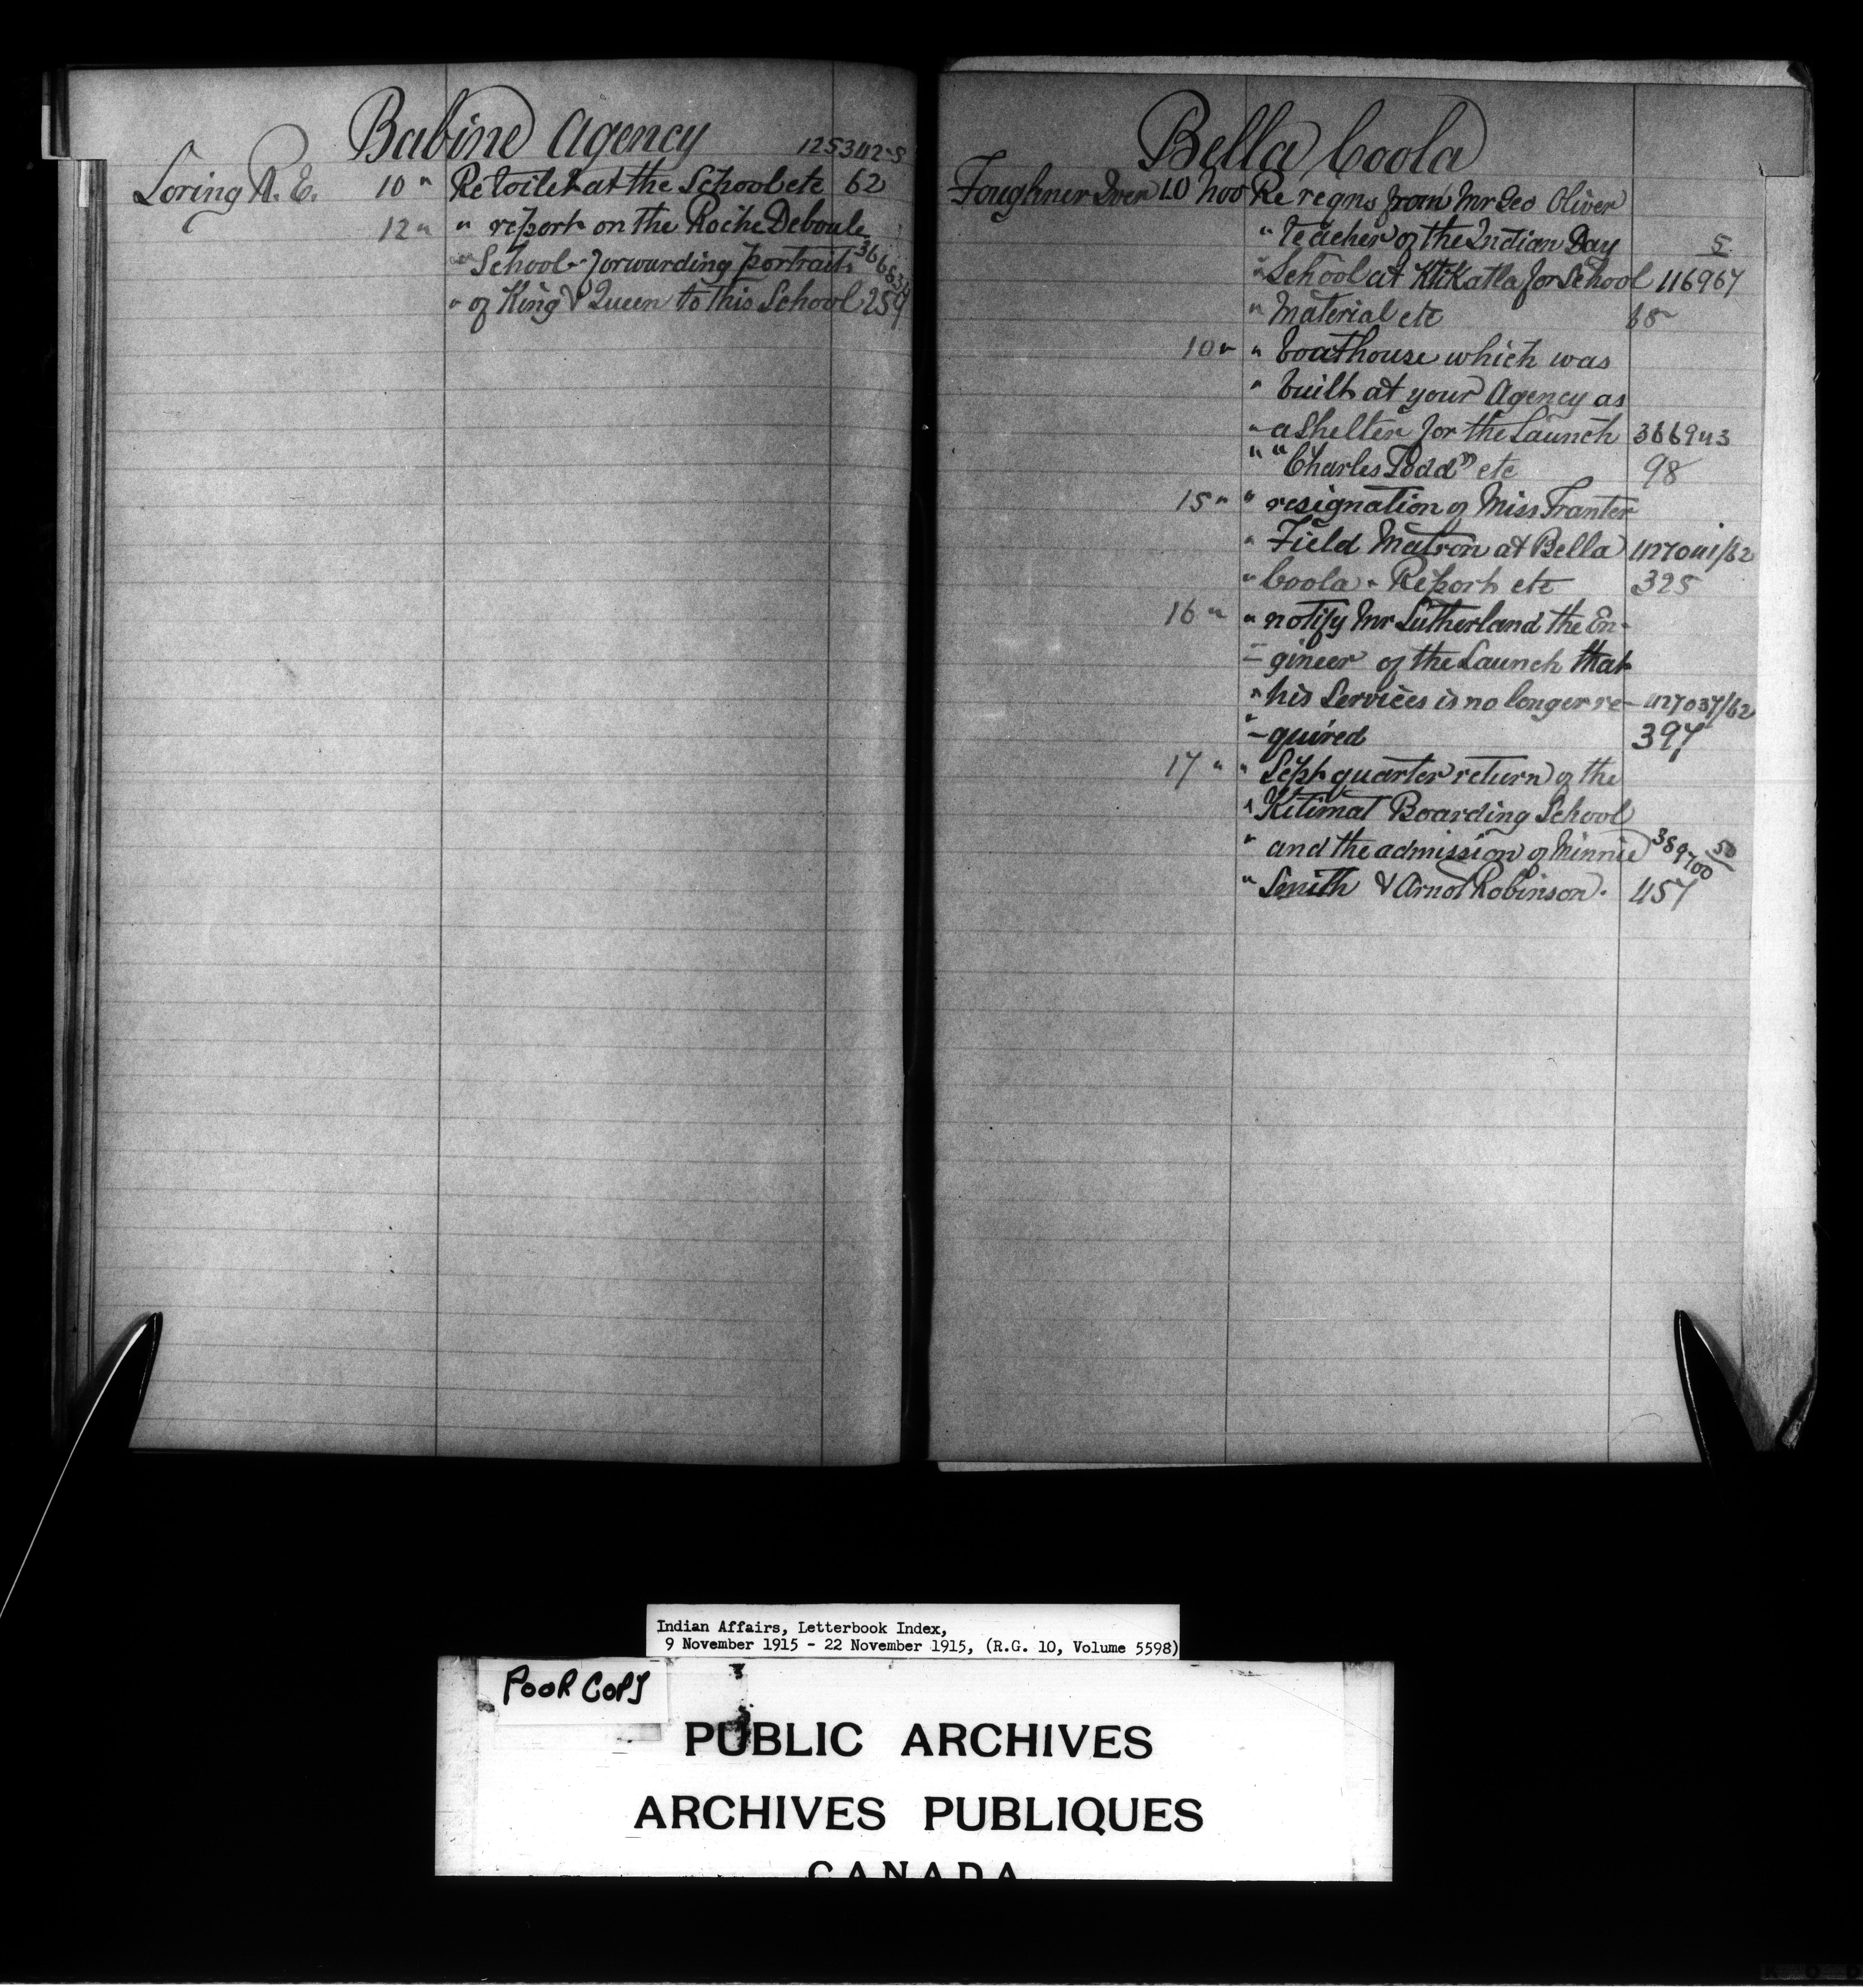 Babine Agency
125342-5
Loring R. E. 10 " Re toilet at the School etc 62
12 " " report on the Roche Deboule
" School - forwarding portraits 36683
" of King & Queen to this School 259
Bella Coola
Foughner Iver 10 Nov Re reqns from Mr Geo Oliver
" teacher of the Indian Day 5
" School at Ktikatla for School 116967
" Material etc 68
10 " " boathouse which was
" built at your Agency as
" a Shelter for the Launch 366943
" "Charles Todd" etc 98
15 " " resignation of Miss Tranter
" Field Matron at Bella 427041/62
" Coola - Report etc 325
16 " " notify Mr Sutherland the En-
" - gineer of the Launch that
" his Services is no longer re- 427037/62
" - quired 397
17 " " Sept quarter return of the
" Kitimat Boarding School
" and the admission of Minnie 389700 50
" Smith & Arnot Robinson. 457
Indian Affairs, Letterbook Index,
9 November 1915 - 22 November 1915, (R.G. 10, Volume 5598)
POOR COPY
PUBLIC ARCHIVES
ARCHIVES PUBLIQUES
CANADA